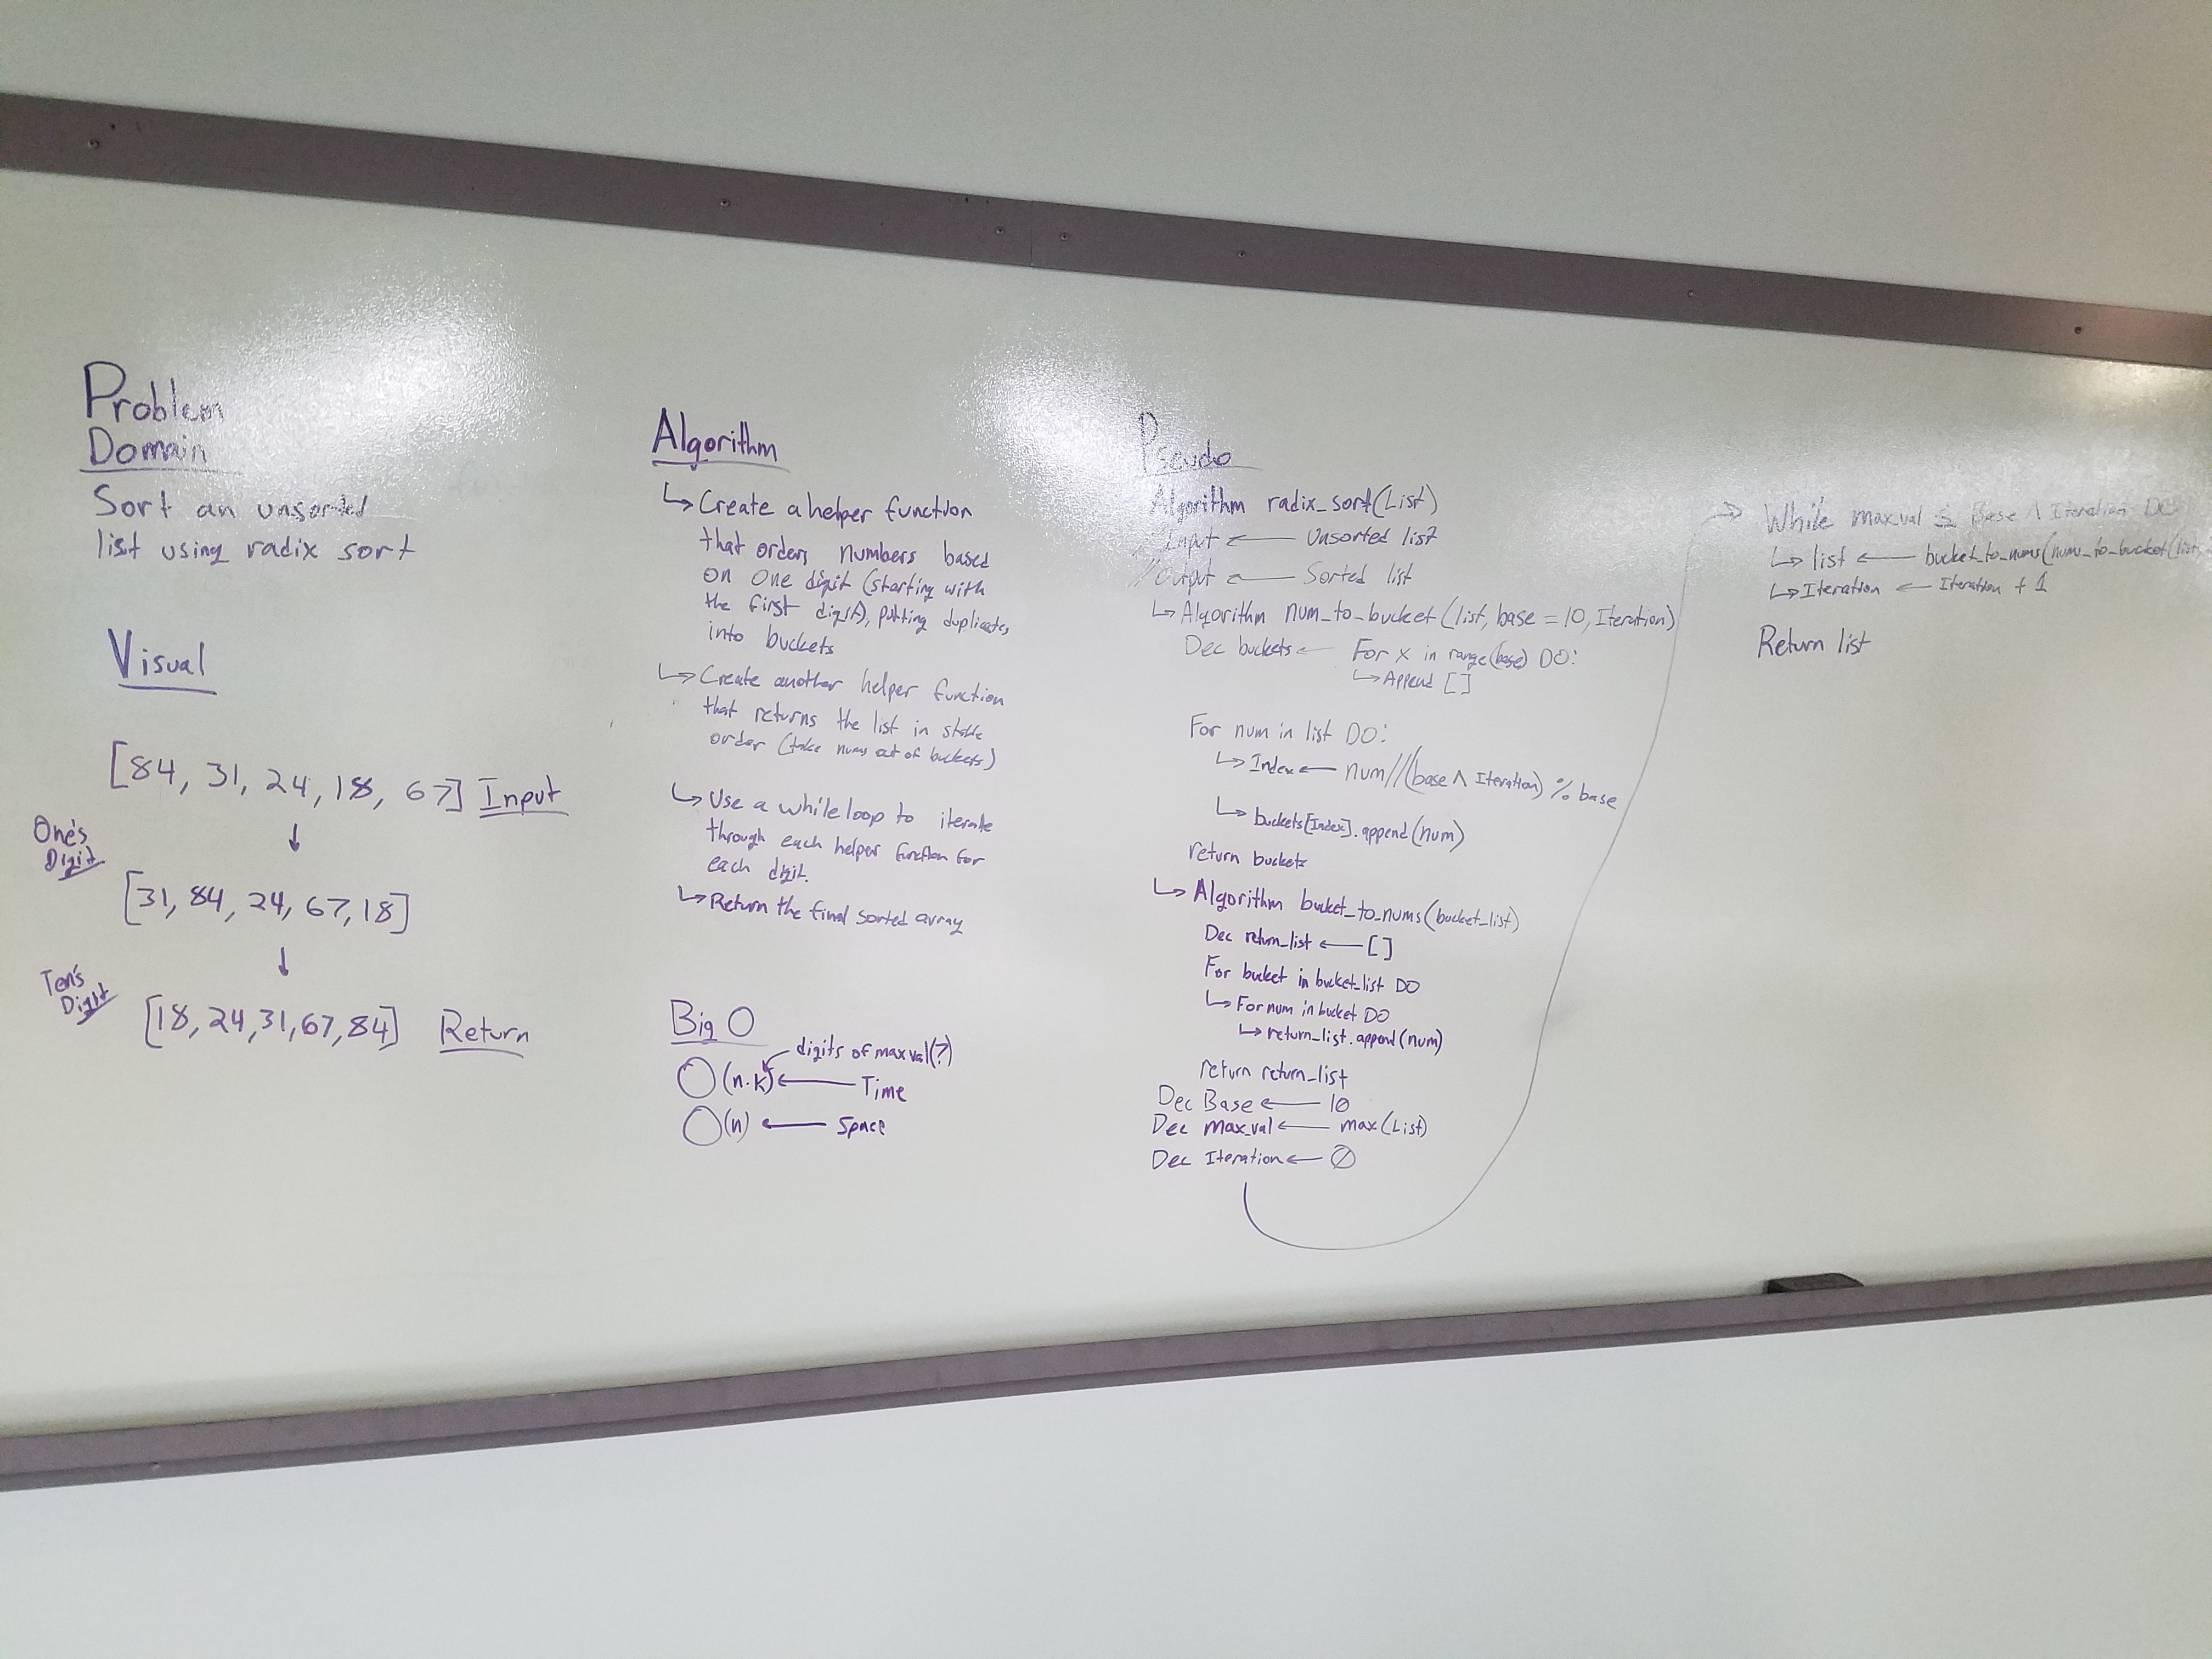 Problem
Domain
Sort an unsorted
list using radix sort
Visual
[84, 31, 24, 18, 67] Input
↓
One's
Digit
[31, 84, 24, 67, 18]
↓
Ten's
Digit
[18, 24, 31, 67, 84] Return
Algorithm
↳ Create a helper function
that orders numbers based
on one digit (starting with
the first digit), putting duplicates
into buckets
↳ Create another helper function
that returns the list in stable
order (take nums out of buckets)
↳ Use a while loop to iterate
through each helper function for
each digit.
↳ Return the final sorted array
Big O
digits of max val(?)
O(n·k) ← Time
O(n) ← Space
Pseudo
Algorithm radix_sort(List)
// Input ← Unsorted list
// Output ← Sorted list
↳ Algorithm num_to_bucket(list, base = 10, Iteration)
Dec buckets ← For x in range(base) DO:
↳ Append []
For num in list DO:
↳ Index ← num//(base ^ Iteration) % base
↳ buckets[Index].append(num)
return buckets
↳ Algorithm bucket_to_nums(bucket_list)
Dec return_list ← []
For bucket in bucket_list DO
↳ For num in bucket DO
↳ return_list.append(num)
return return_list
Dec Base ← 10
Dec max_val ← max(List)
Dec Iteration ← Ø
→ While max_val Base ^ Iteration DO
↳ list ← bucket_to_nums(nums_to_bucket(list
↳ Iteration ← Iteration + 1
Return list